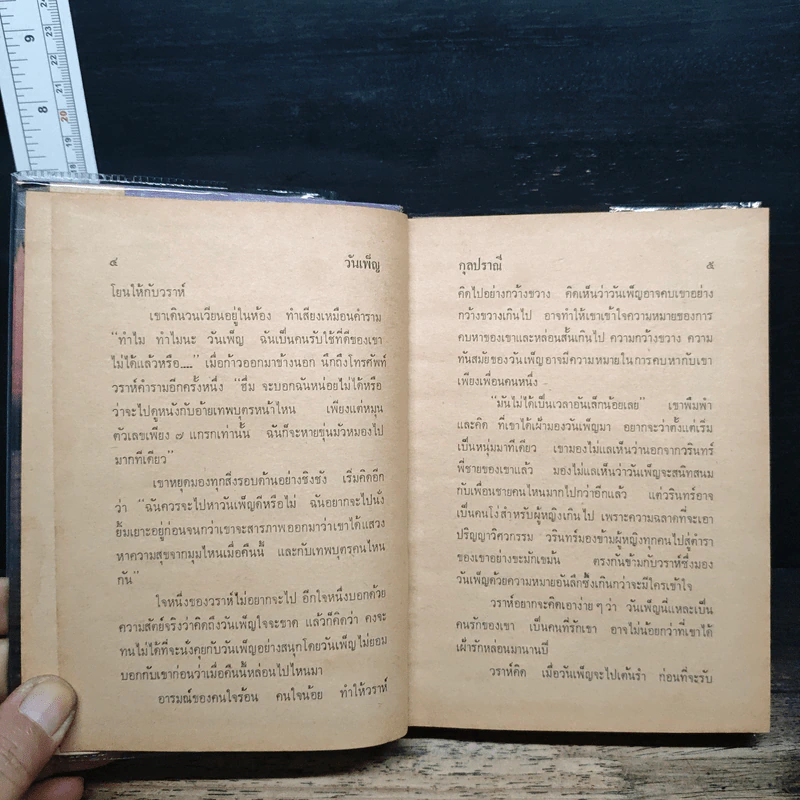 9
8
24
23
22
21
20
19
18
๔ วันเพ็ญ
โยนให้กับวราห์
เขาเดินวนเวียนอยู่ในห้อง ทำเสียงเหมือนคำราม
“ทำไม ทำไมนะ วันเพ็ญ ฉันเป็นคนรับใช้ที่ดีของเขา
ไม่ได้แล้วหรือ....” เมื่อก้าวออกมาข้างนอก นึกถึงโทรศัพท์
วราห์คำรามอีกครั้งหนึ่ง “ฮึ่ม จะบอกฉันหน่อยไม่ได้หรือ
ว่าจะไปดูหนังกับอ้ายเทพบุตรหน้าไหน เพียงแต่หมุน
ตัวเลขเพียง ๗ แกรกเท่านั้น ฉันก็จะหายขุ่นมัวหมองไป
มากทีเดียว”
เขาหยุดมองทุกสิ่งรอบด้านอย่างชิงชัง เริ่มคิดอีก
ว่า “ฉันควรจะไปหาวันเพ็ญดีหรือไม่ ฉันอยากจะไปนั่ง
ยิ้มเยาะอยู่ก่อนจนกว่าเขาจะสารภาพออกมาว่าเขาได้แสวง
หาความสุขจากมุมไหนเมื่อคืนนี้ และกับเทพบุตรคนไหน
กัน”
ใจหนึ่งของวราห์ไม่อยากจะไป อีกใจหนึ่งบอกด้วย
ความสัตย์จริงว่าคิดถึงวันเพ็ญใจจะขาด แล้วก็คิดว่า คงจะ
ทนไม่ได้ที่จะนั่งคุยกับวันเพ็ญอย่างสนุกโดยวันเพ็ญไม่ยอม
บอกกับเขาก่อนว่าเมื่อคืนนี้หล่อนไปไหนมา
อารมณ์ของคนใจร้อน คนใจน้อย ทำให้วราห์
กุลปราณี ๕
คิดไปอย่างกว้างขวาง คิดเห็นว่าวันเพ็ญอาจคบเขาอย่าง
กว้างขวางเกินไป อาจทำให้เขาเข้าใจความหมายของการ
คบหาของเขาและหล่อนสั้นเกินไป ความกว้างขวาง ความ
ทันสมัยของวันเพ็ญอาจมีความหมายในการคบหากับเขา
เพียงเพื่อนคนหนึ่ง
“มันไม่ได้เป็นเวลาอันเล็กน้อยเลย” เขาพึมพำ
และคิด ที่เขาได้เฝ้ามองวันเพ็ญมา อยากจะว่าตั้งแต่เริ่ม
เป็นหนุ่มมาทีเดียว เขามองไม่แลเห็นว่านอกจากวรินทร์
พี่ชายของเขาแล้ว มองไม่แลเห็นว่าวันเพ็ญจะสนิทสนม
กับเพื่อนชายคนไหนมากไปกว่าอีกแล้ว แต่วรินทร์อาจ
เป็นคนโง่สำหรับผู้หญิงเกินไป เพราะความฉลาดที่จะเอา
ปริญญาวิศวกรรม วรินทร์มองข้ามผู้หญิงทุกคนไปสู่ตำรา
ของเขาอย่างขะมักเขม้น ตรงกันข้ามกับวราห์ซึ่งมอง
วันเพ็ญด้วยความหมายอันลึกซึ้งเกินกว่าจะมีใครเข้าใจ
วราห์อยากจะคิดเอาง่าย ๆ ว่า วันเพ็ญนี่แหละเป็น
คนรักของเขา เป็นคนที่รักเขา อาจไม่น้อยกว่าที่เขาได้
เฝ้ารักหล่อนมานานปี
วราห์คิด เมื่อวันเพ็ญจะไปเต้นรำ ก่อนที่จะรับ